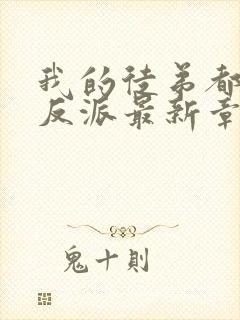 我的徒弟都
反派最新章
鬼十則